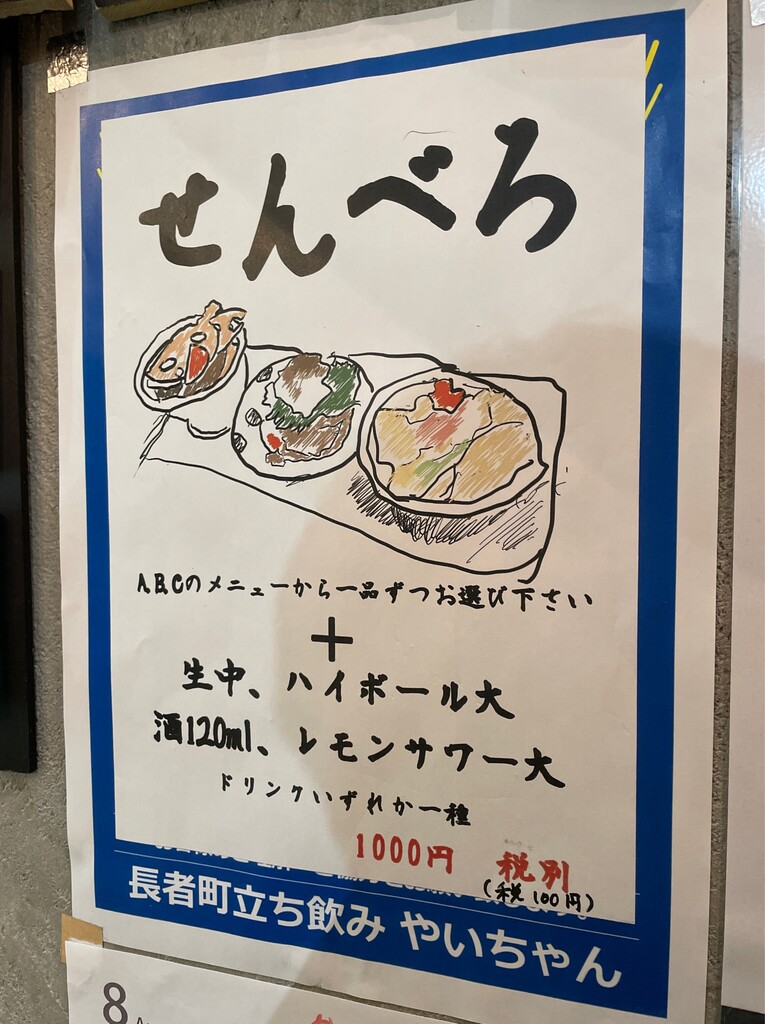 せんべろ
A.B.Cのメニューから一品ずつお選び下さい
+
生中、ハイボール大
酒120ml、レモンサワー大
ドリンクいずれか一種
1000円 税別
(税100円)
長者町立ち飲み やいちゃん
8